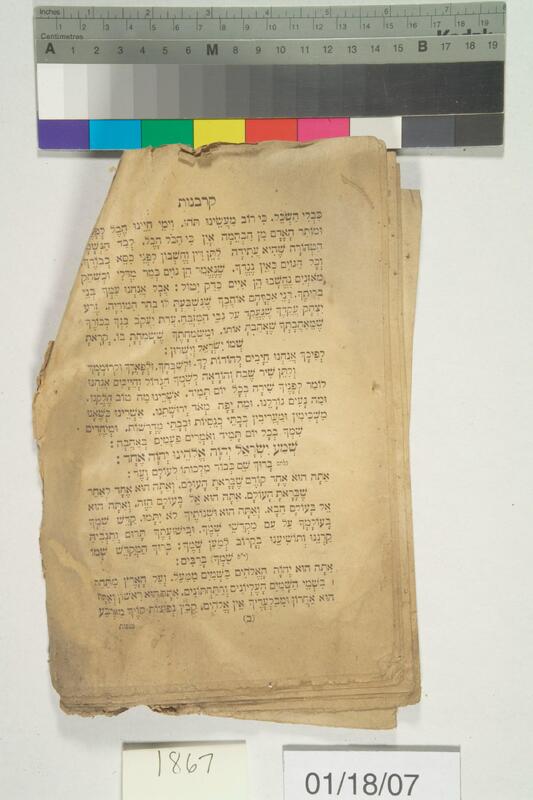 Inches 1 2 3 4 5 6 7 8
1 2 3 4 5 6 7 8 9 10 11 12 13 14 15 16 17 18 19
Centimetres
A 1 2 3 4 5 6 M 8 9 10 11 12 13 14 15 B 17 18 19
קרבנות
כִּבְלִי הַשְׂכֵּל. כִּי רוֹב מַעֲשֵׂינוּ תֹּהוּ, וִימֵי חַיֵּינוּ הֶבֶל
וּמוֹתַר הָאָדָם מִן הַבְּהֵמָה אָיִן כִּי הַכֹּל הָבֶל. לְבַד הַנְּשָׁמָה
הַטְּהוֹרָה שֶׁהִיא עֲתִידָה לִתֵּן דִּין וְחֶשְׁבּוֹן לִפְנֵי כִסֵּא כְבוֹדֶךָ
וְכָל הַגּוֹיִם כְּאַיִן נֶגְדֶּךָ. שֶׁנֶּאֱמַר הֵן גּוֹיִם כְּמַר מִדְּלִי וּכְשַׁחַק
מֹאזְנַיִם נֶחְשָׁבוּ הֵן אִיִּים כַּדַּק יִטּוֹל: אֲבָל אֲנַחְנוּ עַמְּךָ בְּנֵי
בְרִיתֶךָ. בְּנֵי אַבְרָהָם אוֹהַבְךָ שֶׁנִּשְׁבַּעְתָּ לּוֹ בְּהַר הַמּוֹרִיָּה. זֶרַע
יִצְחָק עֲקֵדְךָ שֶׁנֶּעֱקַד עַל גַּבֵּי הַמִּזְבֵּחַ. עֲדַת יַעֲקֹב בִּנְךָ בְּכוֹרֶךָ
שֶׁמֵּאַהֲבָתְךָ שֶׁאָהַבְתָּ אוֹתוֹ, וּמִשִּׂמְחָתְךָ שֶׁשָּׂמַחְתָּ בּוֹ, קָרָאתָ
שְׁמוֹ יִשְׂרָאֵל וִישֻׁרוּן:
לְפִיכָךְ אֲנַחְנוּ חַיָּבִים לְהוֹדוֹת לָךְ. וּלְשַׁבֵּחֲךָ, וּלְפָאֶרְךָ וּלְרוֹמְמֶךָ
וְלִתֵּן שִׁיר שֶׁבַח וְהוֹדָאָה לְשִׁמְךָ הַגָּדוֹל וְחַיָּיבִים אֲנַחְנוּ
לוֹמַר לְפָנֶיךָ שִׁירָה בְּכָל יוֹם תָּמִיד. אַשְׁרֵינוּ מַה טּוֹב חֶלְקֵנוּ.
וּמַה נָּעִים גּוֹרָלֵנוּ. וּמַה יָּפָה מְאֹד יְרוּשָׁתֵנוּ. אַשְׁרֵינוּ כְּשֶׁאָנוּ
מַשְׁכִּימִין וּמַעֲרִיבִין בְּבָתֵּי כְנֵסִיּוֹת וּבְבָתֵּי מִדְרָשׁוֹת. וּמְיַחֲדִים
שִׁמְךָ בְּכָל יוֹם תָּמִיד וְאוֹמְרִים פַּעֲמַיִם בְּאַהֲבָה:
שְׁמַע יִשְׂרָאֵל יְהֹוָה אֱלֹהֵינוּ יְהֹוָה אֶחָד:
בָּרוּךְ שֵׁם כְּבוֹד מַלְכוּתוֹ לְעוֹלָם וָעֶד:
אַתָּה הוּא אֶחָד קוֹדֶם שֶׁבָּרָאתָ הָעוֹלָם. וְאַתָּה הוּא אֶחָד לְאַחַר
שֶׁבָּרָאתָ הָעוֹלָם. אַתָּה הוּא אֵל בָּעוֹלָם הַזֶּה, וְאַתָּה הוּא
אֵל בָּעוֹלָם הַבָּא. וְאַתָּה הוּא וּשְׁנוֹתֶיךָ לֹא יִתָּמּוּ. קַדֵּשׁ שִׁמְךָ
בְּעוֹלָמֶךָ עַל עַם מְקַדְּשֵׁי שְׁמֶךָ. וּבִישׁוּעָתְךָ תָּרוּם וְתַגְבִּיהַּ
קַרְנֵנוּ וְתוֹשִׁיעֵנוּ בְּקָרוֹב לְמַעַן שְׁמֶךָ: בָּרוּךְ הַמְקַדֵּשׁ שְׁמוֹ
שִׁמְךָ) בָּרַבִּים:
אַתָּה הוּא יְהֹוָה הָאֱלֹהִים בַּשָּׁמַיִם מִמַּעַל. וְעַל הָאָרֶץ מִתָּחַת
בִּשְׁמֵי הַשָּׁמַיִם הָעֶלְיוֹנִים וְהַתַּחְתּוֹנִים. אַתָּה הוּא רִאשׁוֹן וְאַתָּה
הוּא אַחֲרוֹן וּמִבַּלְעָדֶיךָ אֵין אֱלֹהִים. קַבֵּץ נְפוּצוֹת קוֹיֶךָ מֵאַרְבַּע
(ב)
כנפות
1867
01/18/07